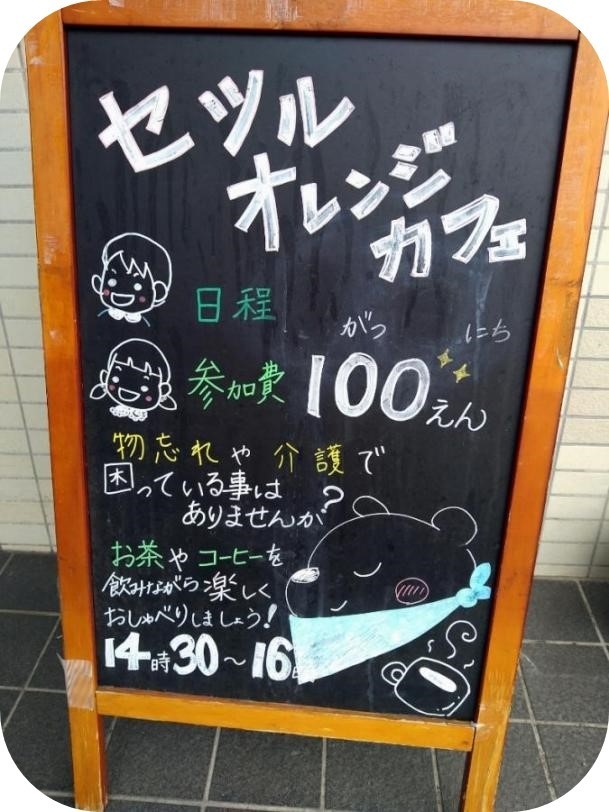 セツル
オレンジ
カフェ
日程 がつ にち
参加費 100えん
物忘れや介護で
困っている事は
ありませんか?
お茶やコーヒーを
飲みながら楽しく
おしゃべりしましょう!
14時30~16時